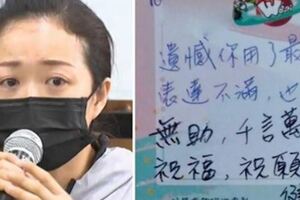 遺憾你用了最
表達不滿，也
無助，千言萬
祝福，祝願